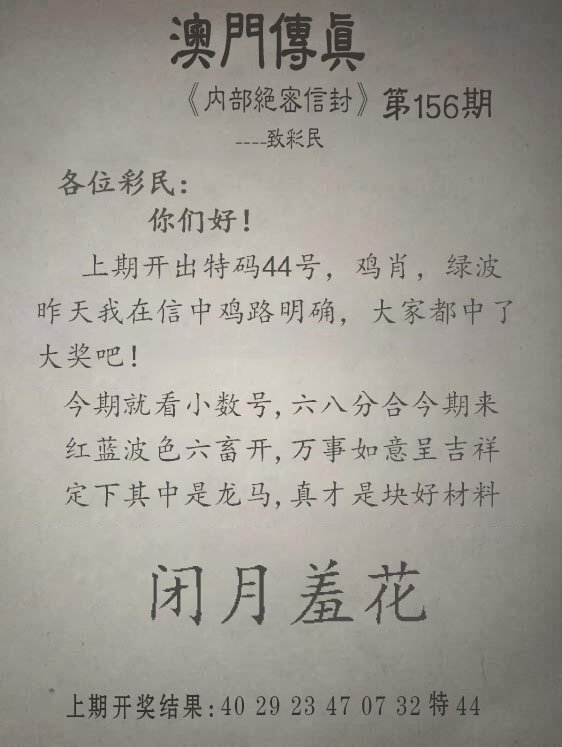 澳門傳真
《内部絕密信封》第156期
----致彩民
各位彩民：
你们好！
上期开出特码44号，鸡肖，绿波
昨天我在信中鸡路明确，大家都中了
大奖吧！
今期就看小数号,六八分合今期来
红蓝波色六畜开,万事如意呈吉祥
定下其中是龙马,真才是块好材料
闭月羞花
上期开奖结果:40 29 23 47 07 32 特 44